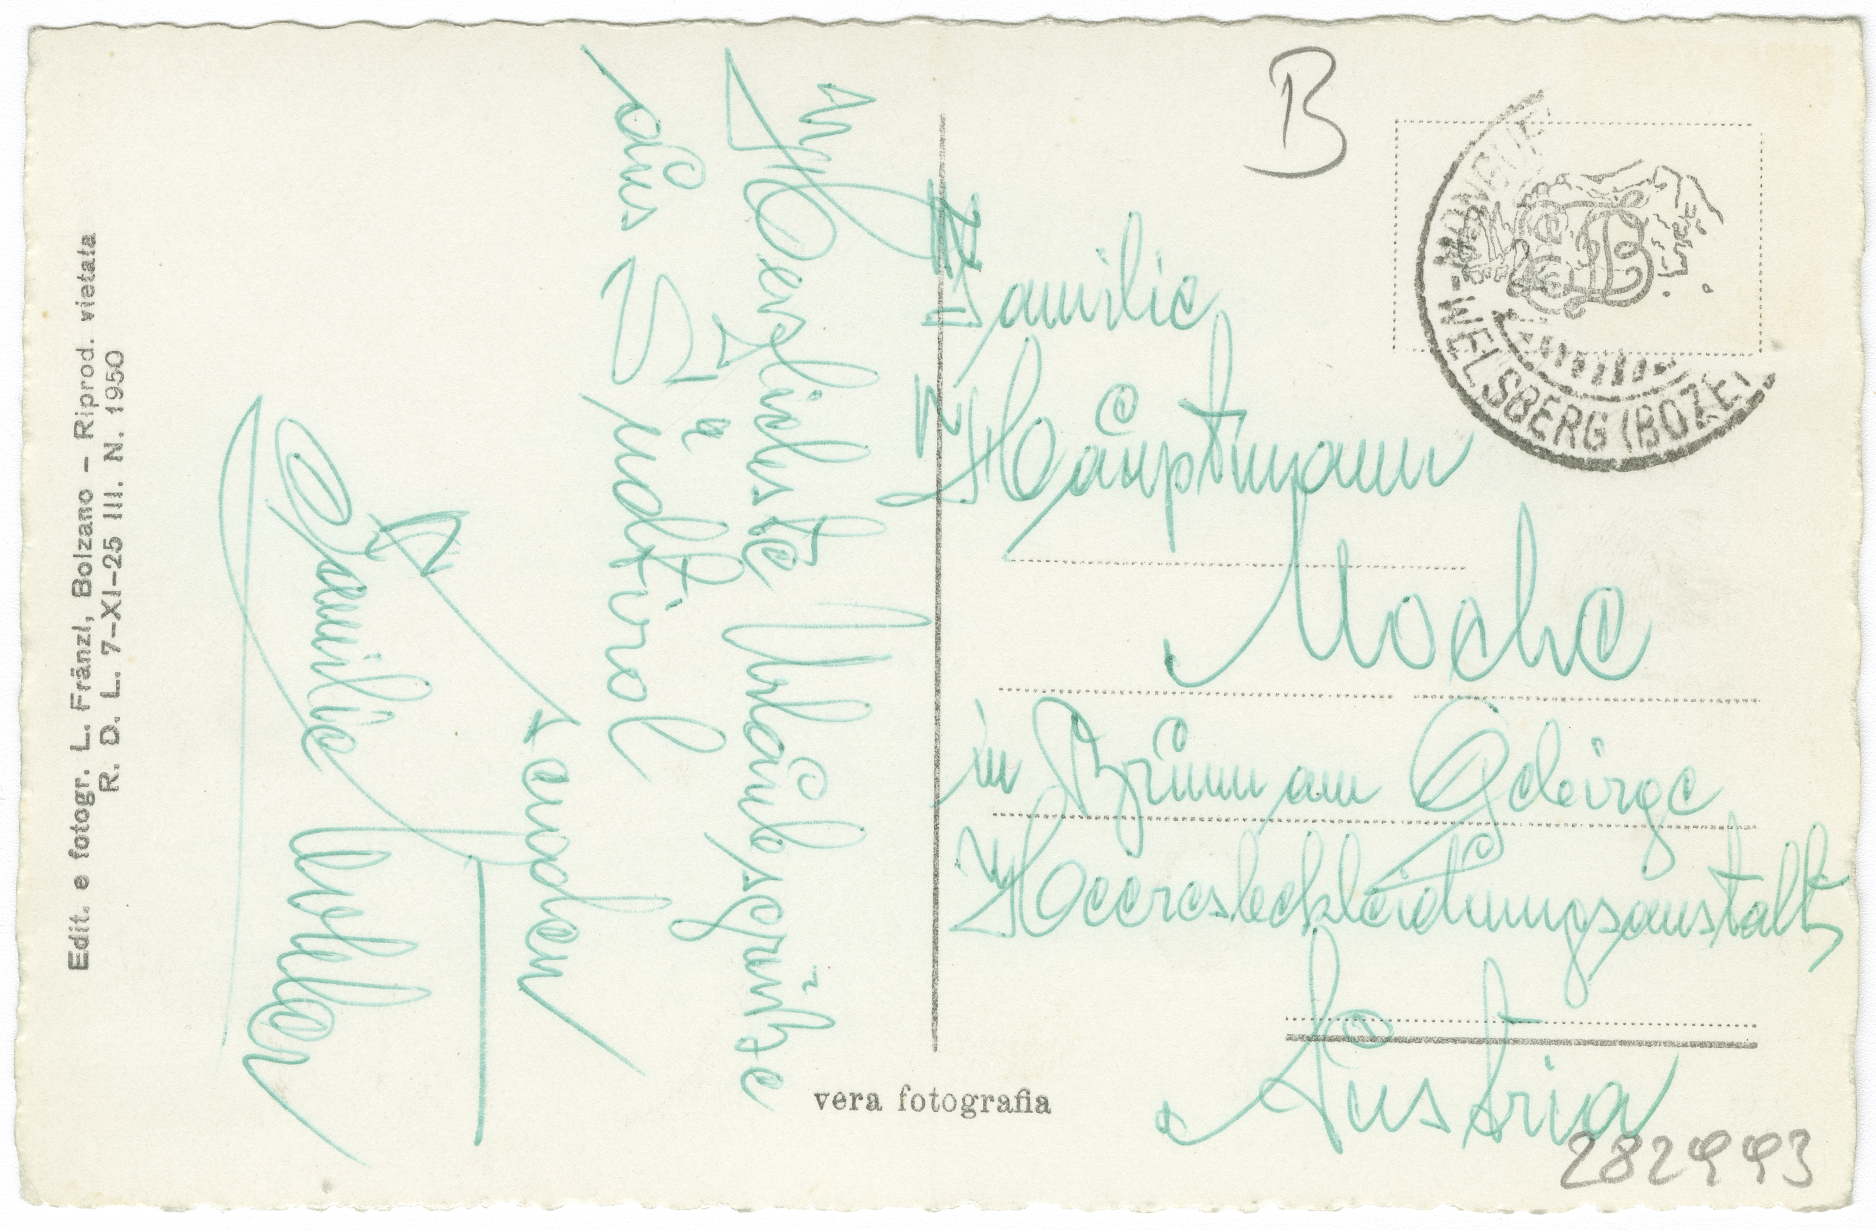 Herzlichste Urlaubsgrüße
aus Südtirol
senden
Familie
B
Familie
Hauptmann
in Brunn am Gebirge
Heeresbekleidungsanstalt
Austria
MONGUE
-WELSBERG (BOZE
Edit. e fotogr. L. Fränzl, Bolzano - Riprod. vietata
R. D. L. 7-XI-25 III. N. 1950
vera fotografia
282993